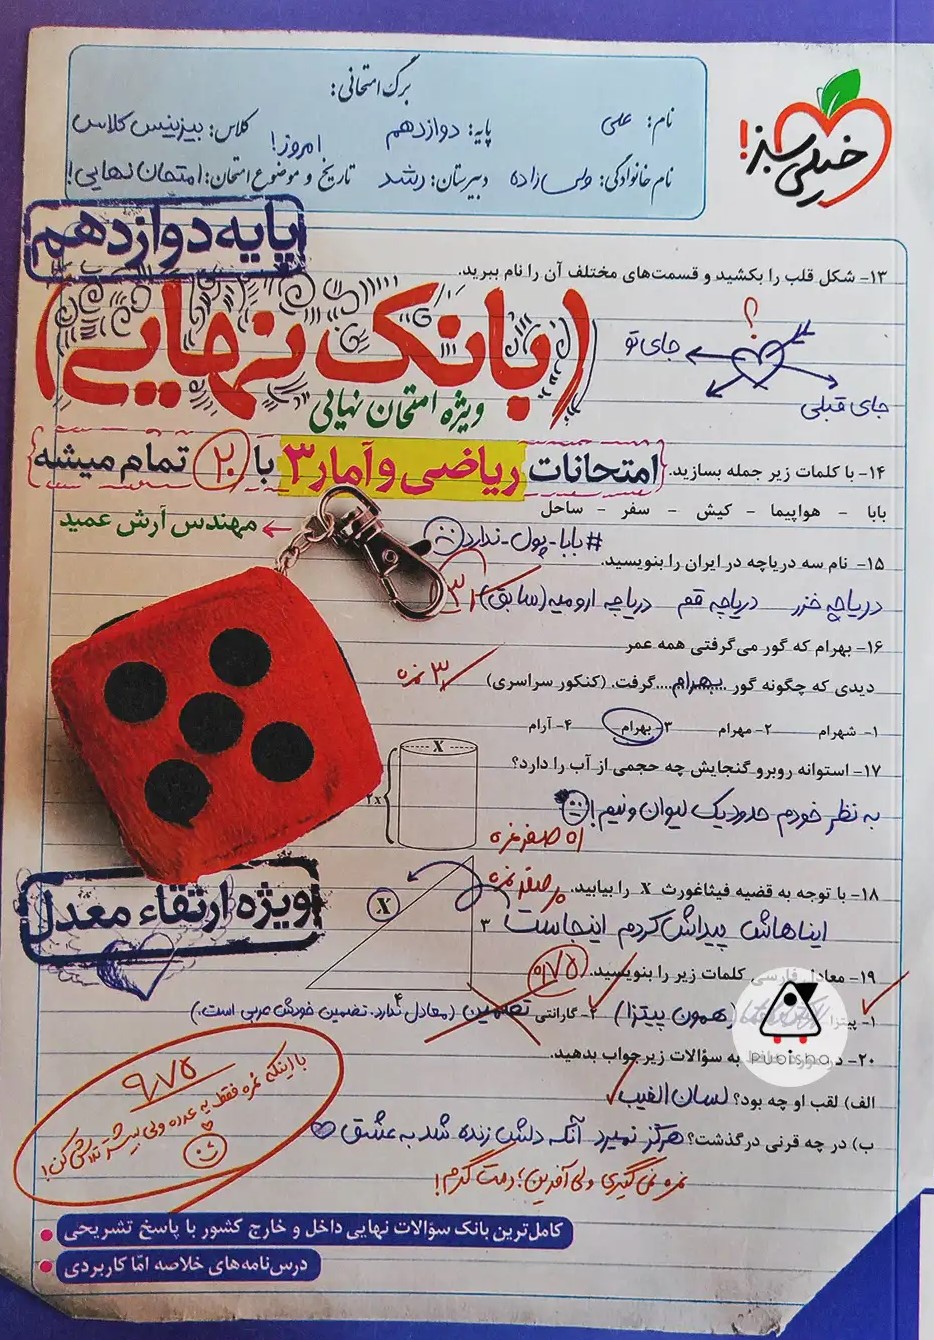 برگ امتحانی:
نام: علی
پایه: دوازدهم
کلاس: بیزینس کلاس
نام خانوادگی: ولی زاده
دبیرستان: رشد
تاریخ و موضوع امتحان: امتحان نهایی!
امروز!
خیلی سبز!
پایه دوازدهم
۱۳- شکل قلب را بکشید و قسمت‌های مختلف آن را نام ببرید.
(بانک نهایی)
؟
جای تو
جای قبلی
ویژه امتحان نهایی
۱۴- با کلمات زیر جمله بسازید.
{امتحانات ریاضی و آمار ۳ با ۲۰ تمام میشه}
بابا - هواپیما - کیش - سفر - ساحل
مهندس آرش عمید
#بابا-پول-ندارد
۱۵- نام سه دریاچه در ایران را بنویسید.
دریاچه خزر دریاچه قم دریاچه ارومیه (سابق)
۱۶- بهرام که گور می‌گرفتی همه عمر
دیدی که چگونه گور ....بهرام.... گرفت. (کنکور سراسری)
۳ نمره
۱- شهرام ۲- مهرام ۳- بهرام ۴- آرام
۱۷- استوانه روبرو گنجایش چه حجمی از آب را دارد؟
X
۲x
به نظر خودم حدود یک لیوان و نیم!
اه صفر نمره
۱۸- با توجه به قضیه فیثاغورث X را بیابید.
صفر نمره
X
۳
۴
ایناهاش پیداش کردم اینجاست
ویژه ارتقاء معدل
۱۹- معادل فارسی کلمات زیر را بنویسید.
۰/۷۵
۱- پیتزا (همون پیتزا) ۲- گارانتی تضمین (معادل ندارد. تضمین خودش عربی است.)
pixoisha
۲۰- در مورد به سؤالات زیر جواب بدهید.
الف) لقب او چه بود؟ لسان الغیب
ب) در چه قرنی درگذشت؟ هرگز نمیرد آنکه دلش زنده شد به عشق
نمره نمی‌گیری ولی آفرین؛ دمت گرم!
۹/۷۵
با اینکه نمره فقط یه عدده ولی بیشتر تلاش کن!
کامل‌ترین بانک سؤالات نهایی داخل و خارج کشور با پاسخ تشریحی
درس‌نامه‌های خلاصه امّا کاربردی